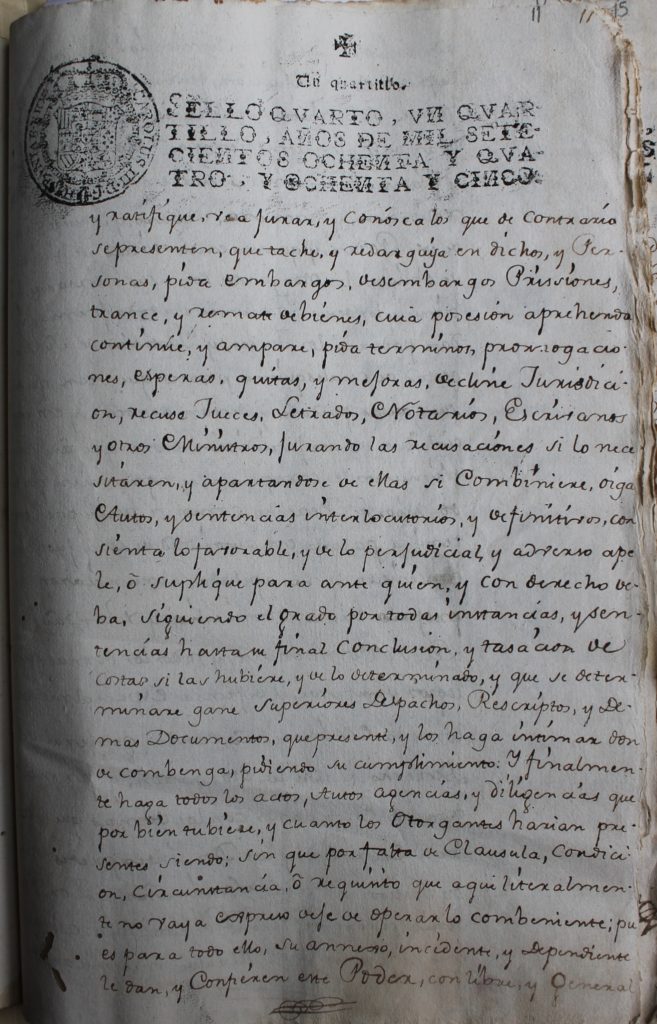 15
Un quartillo.
SELLO QVARTO, VN QVAR-
TILLO, AÑOS DE MIL SETE-
CIENTOS OCHENTA Y QVA-
TRO, Y OCHENTA Y CINCO.
CAROLUS III D. G.
y ratifique, vea Jurar, y conósca los que de contrario
se presenten, que tache, y redarguya en dichos, y Per-
sonas, pida embargos, desembargos Prissiones,
trance, y remate de biénes, cuia posesión aprehenda
continúe, y ampare, pida terminos, prorrogacio-
nes, esperas, quitas, y mejoras, decline Jurisdici-
on, recuse Jueces, Letrados, Notarios, Escrivanos
y otros Ministros, jurando las recusaciónes si lo nece-
sitaren, y apartandose de ellas si Combiniere, oiga
Autos, y sentencias interlocutorios, y definitivos, con
sienta lo favorable, y de lo perjudicial, y adverso ape-
le, ó suplique para ante quién, y con derecho de-
ba, siguiendo el grado por todas instancias, y sen-
tencias hasta su final Conclusión, y tasación de
costas si las hubiere, y de lo determinado, y que se deter-
mináre gane superióres Despachos, Rescriptos, y De-
mas Documentos, que presente, y los haga intimar don
de combenga, pidiendo su cumplimiento: Y finalmen-
te haga todos los actos, Autos agencias, y diligencias que
por bién tubiere, y cuanto los Otorgantes harian pre-
sentes siendo; sin que por falta de Clausula, Condici-
on, Circunstancia, ó requisito que aqui literalmen-
te no vaya expreso dese de operar lo combeniente; pu-
es para todo ello, su annexo, incidente, y Dependiente
le dan, y Confieren este Poder, con libre, y General